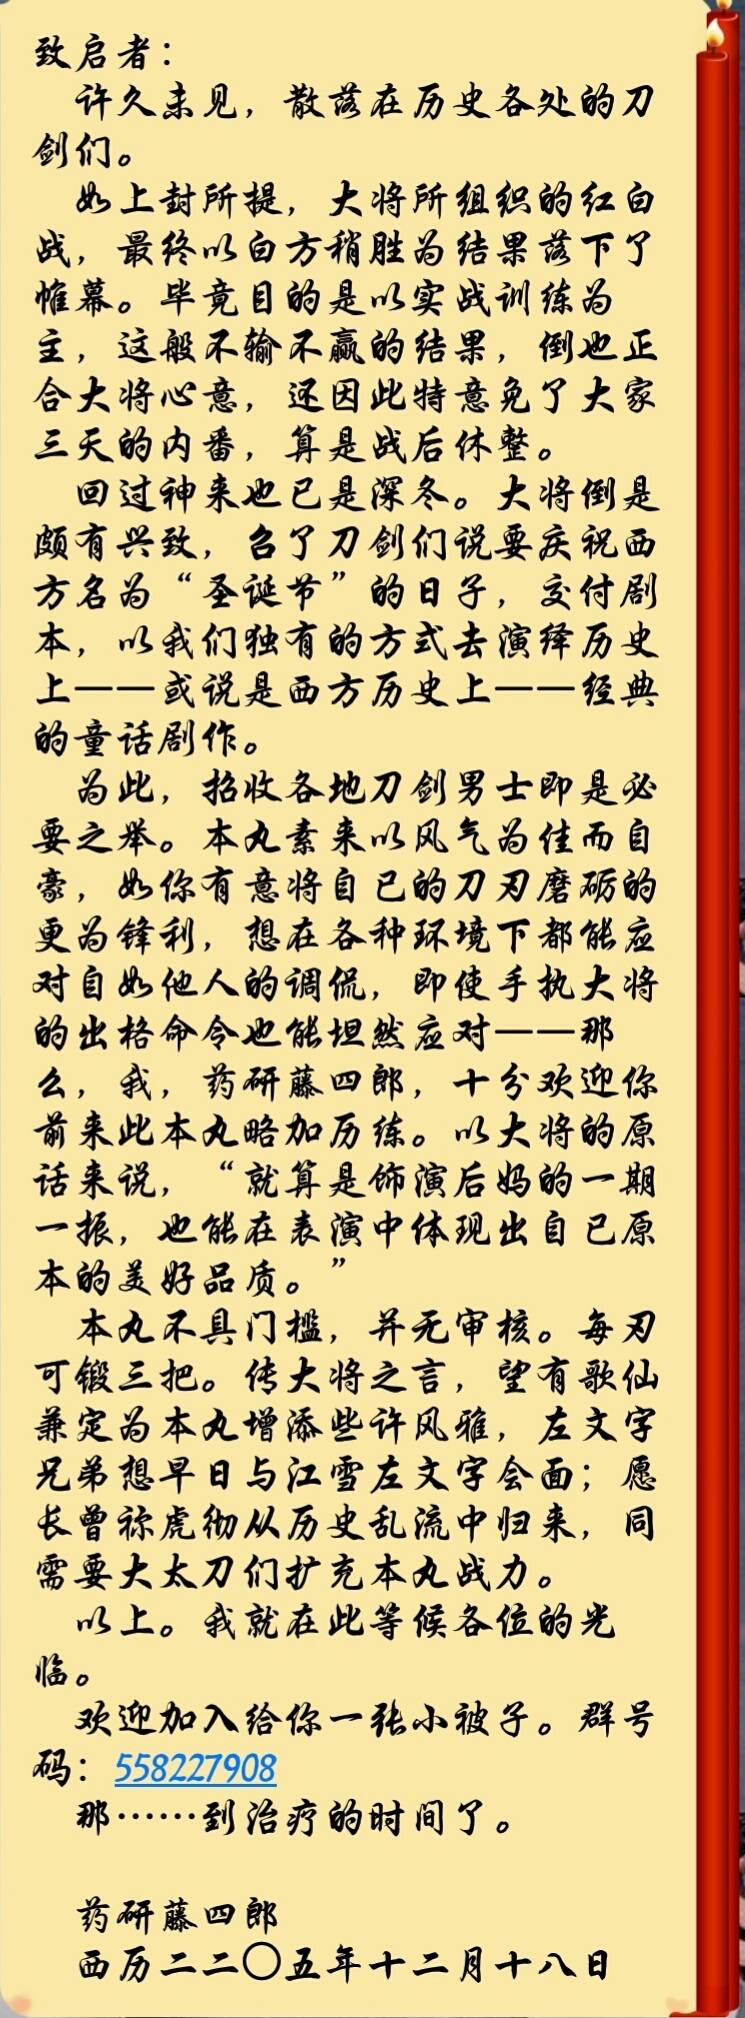 致启者：
许久未见，散落在历史各处的刀
剑们。
如上封所提，大将所组织的红白
战，最终以白方稍胜为结果落下了
帷幕。毕竟目的是以实战训练为
主，这般不输不赢的结果，倒也正
合大将心意，还因此特意免了大家
三天的内番，算是战后休整。
回过神来也已是深冬。大将倒是
颇有兴致，召了刀剑们说要庆祝西
方名为“圣诞节”的日子，交付剧
本，以我们独有的方式去演绎历史
上——或说是西方历史上——经典
的童话剧作。
为此，招收各地刀剑男士即是必
要之举。本丸素来以风气为佳而自
豪，如你有意将自己的刀刃磨砺的
更为锋利，想在各种环境下都能应
对自如他人的调侃，即使手执大将
的出格命令也能坦然应对——那
么，我，药研藤四郎，十分欢迎你
前来此本丸略加历练。以大将的原
话来说，“就算是饰演后妈的一期
一振，也能在表演中体现出自己原
本的美好品质。”
本丸不具门槛，并无审核。每刃
可锻三把。传大将之言，望有歌仙
兼定为本丸增添些许风雅，左文字
兄弟想早日与江雪左文字会面；愿
长曾祢虎彻从历史乱流中归来，同
需要大太刀们扩充本丸战力。
以上。我就在此等候各位的光
临。
欢迎加入给你一张小被子。群号
码：558227908
那……到治疗的时间了。
药研藤四郎
西历二二〇五年十二月十八日